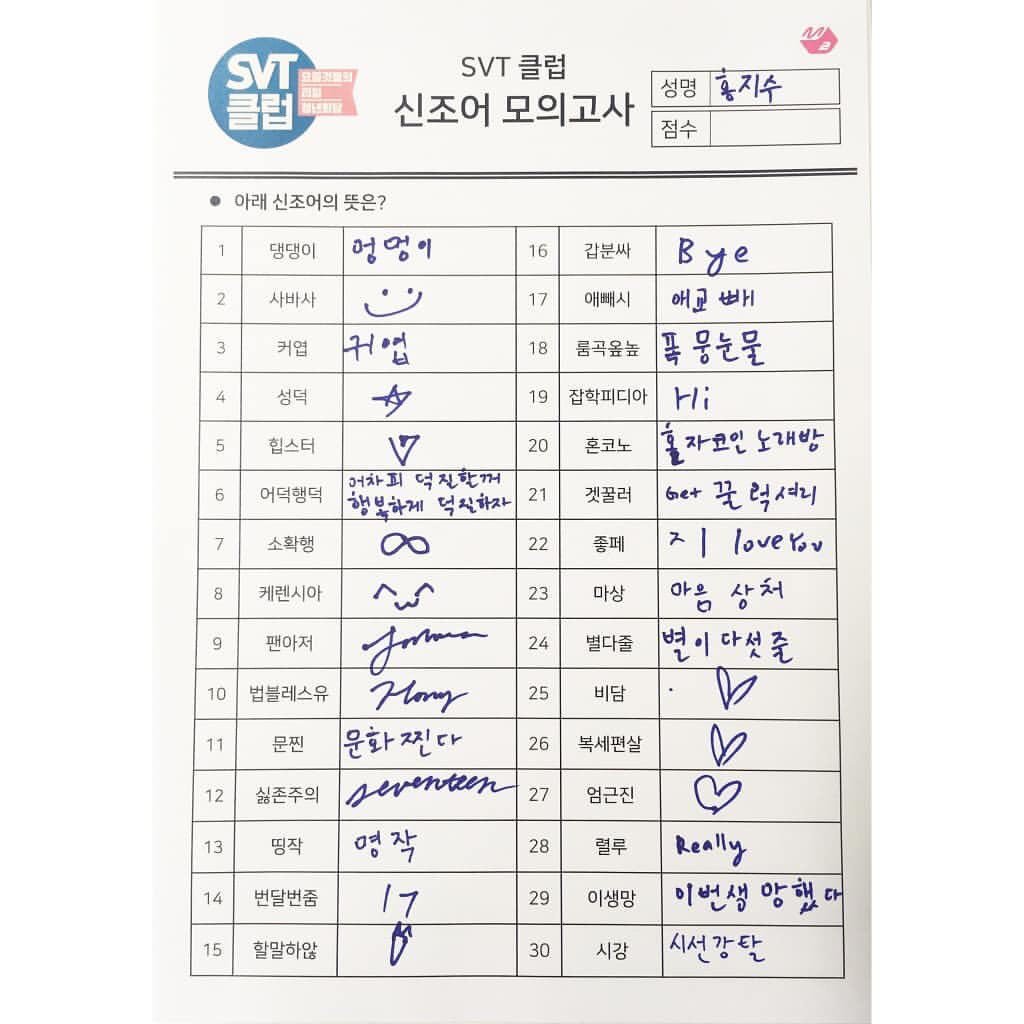 SVT 클럽
요즘것들의
리얼
청년회담
M2
SVT 클럽
신조어 모의고사
성명 홍지수
점수
● 아래 신조어의 뜻은?
1 댕댕이 멍멍이
2 사바사
3 커엽 귀엽
4 성덕
5 힙스터
6 어덕행덕 어차피 덕질할꺼
행복하게 덕질하자
7 소확행
8 케렌시아
9 팬아저 Joshua
10 법블레스유 Hong
11 문찐 문화 찐다
12 싫존주의 seventeen
13 띵작 명작
14 번달번줌 17
15 할말하않
16 갑분싸 Bye
17 애빼시 애교 빼
18 룸곡옾눞 폭풍눈물
19 잡학피디아 Hi
20 혼코노 홀자코인 노래방
21 겟꿀러 Get 꿀 럭셔리
22 좋페 ㅈ I love You
23 마상 마음 상처
24 별다줄 별이 다섯 줄
25 비담
26 복세편살
27 엄근진
28 렬루 Really
29 이생망 이번생 망했다
30 시강 시선강탈